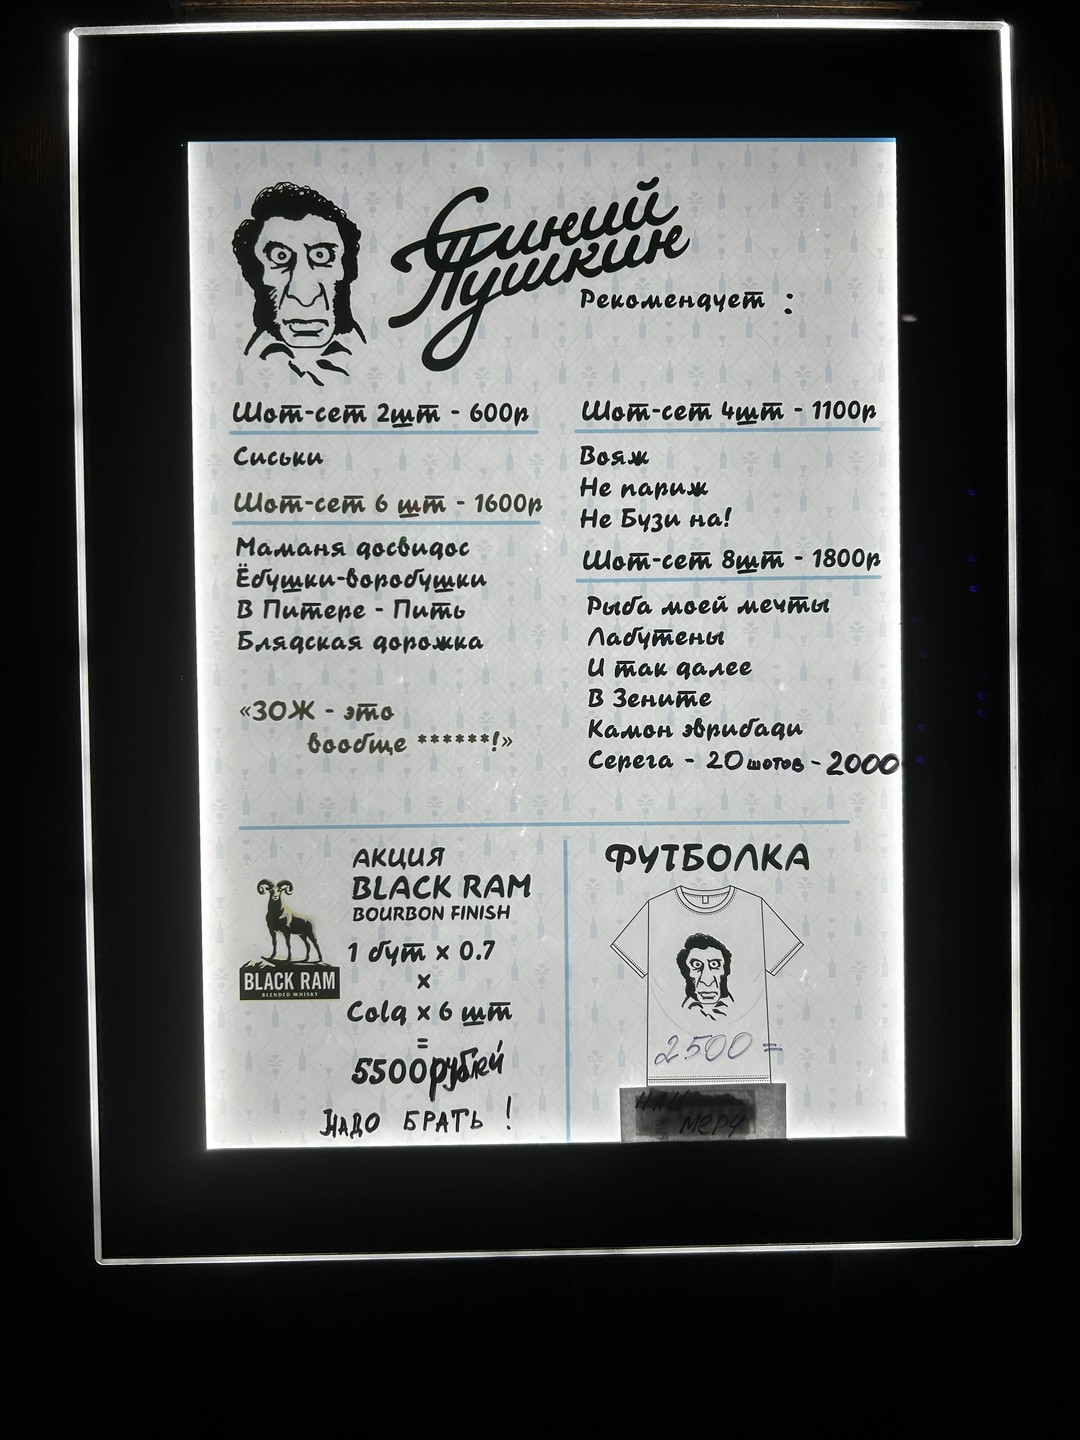 Синий
Пушкин
Рекомендует :
Шот-сет 2шт - 600р
Сиськи
Шот-сет 6 шт - 1600р
Маманя досвидос
Ёбушки-воробушки
В Питере - Пить
Блядская дорожка
«ЗОЖ - это
вообще ******!»
Шот-сет 4шт - 1100р
Вояж
Не париж
Не Бузи на!
Шот-сет 8шт - 1800р
Рыба моей мечты
Лабутены
И так далее
В Зените
Камон эврибади
Серега - 20 шотов - 2000
АКЦИЯ
BLACK RAM
BOURBON FINISH
1 бут х 0.7
х
Cola х 6 шт
=
5500рублей
НАДО БРАТЬ !
BLACK RAM
BLENDED WHISKY
ФУТБОЛКА
2500=